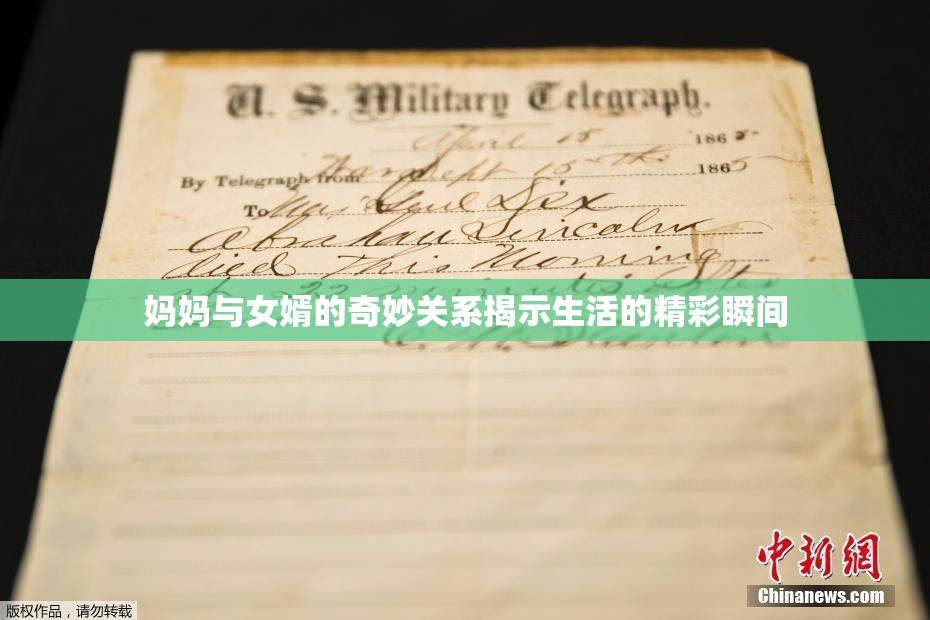 U. S. Military Telegraph.
April 15 1865
By Telegraph from War Dept 15th 1865
To Maj Genl Dix
Abraham Lincoln
died This Morning
at 22 minutes after
妈妈与女婿的奇妙关系揭示生活的精彩瞬间
E. M. Stanton
中新网
Chinanews.com
版权作品,请勿转载